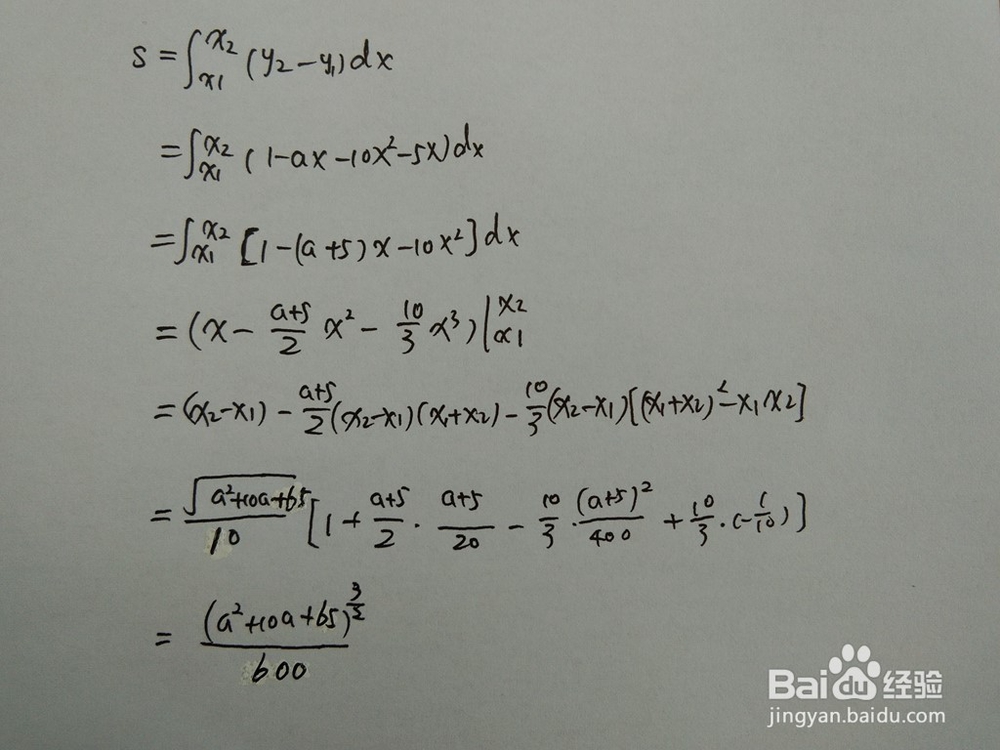 S = ∫_{x1}^{x2} (y2 - y1) dx
= ∫_{x1}^{x2} (1 - ax - 10x² - 5x) dx
= ∫_{x1}^{x2} [1 - (a+5)x - 10x²] dx
= (x - \frac{a+5}{2} x² - \frac{10}{3} x³) |_{x1}^{x2}
= (x2 - x1) - \frac{a+5}{2} (x2 - x1)(x1 + x2) - \frac{10}{3} (x2 - x1)[(x1 + x2)² - x1x2]
= \frac{\sqrt{a²+10a+65}}{10} [1 + \frac{a+5}{2} · \frac{a+5}{20} - \frac{10}{3} · \frac{(a+5)²}{400} + \frac{10}{3} · (-\frac{1}{10})]
= \frac{(a²+10a+65)^{\frac{3}{2}}}{600}
Baidu经验
jingyan.baidu.com